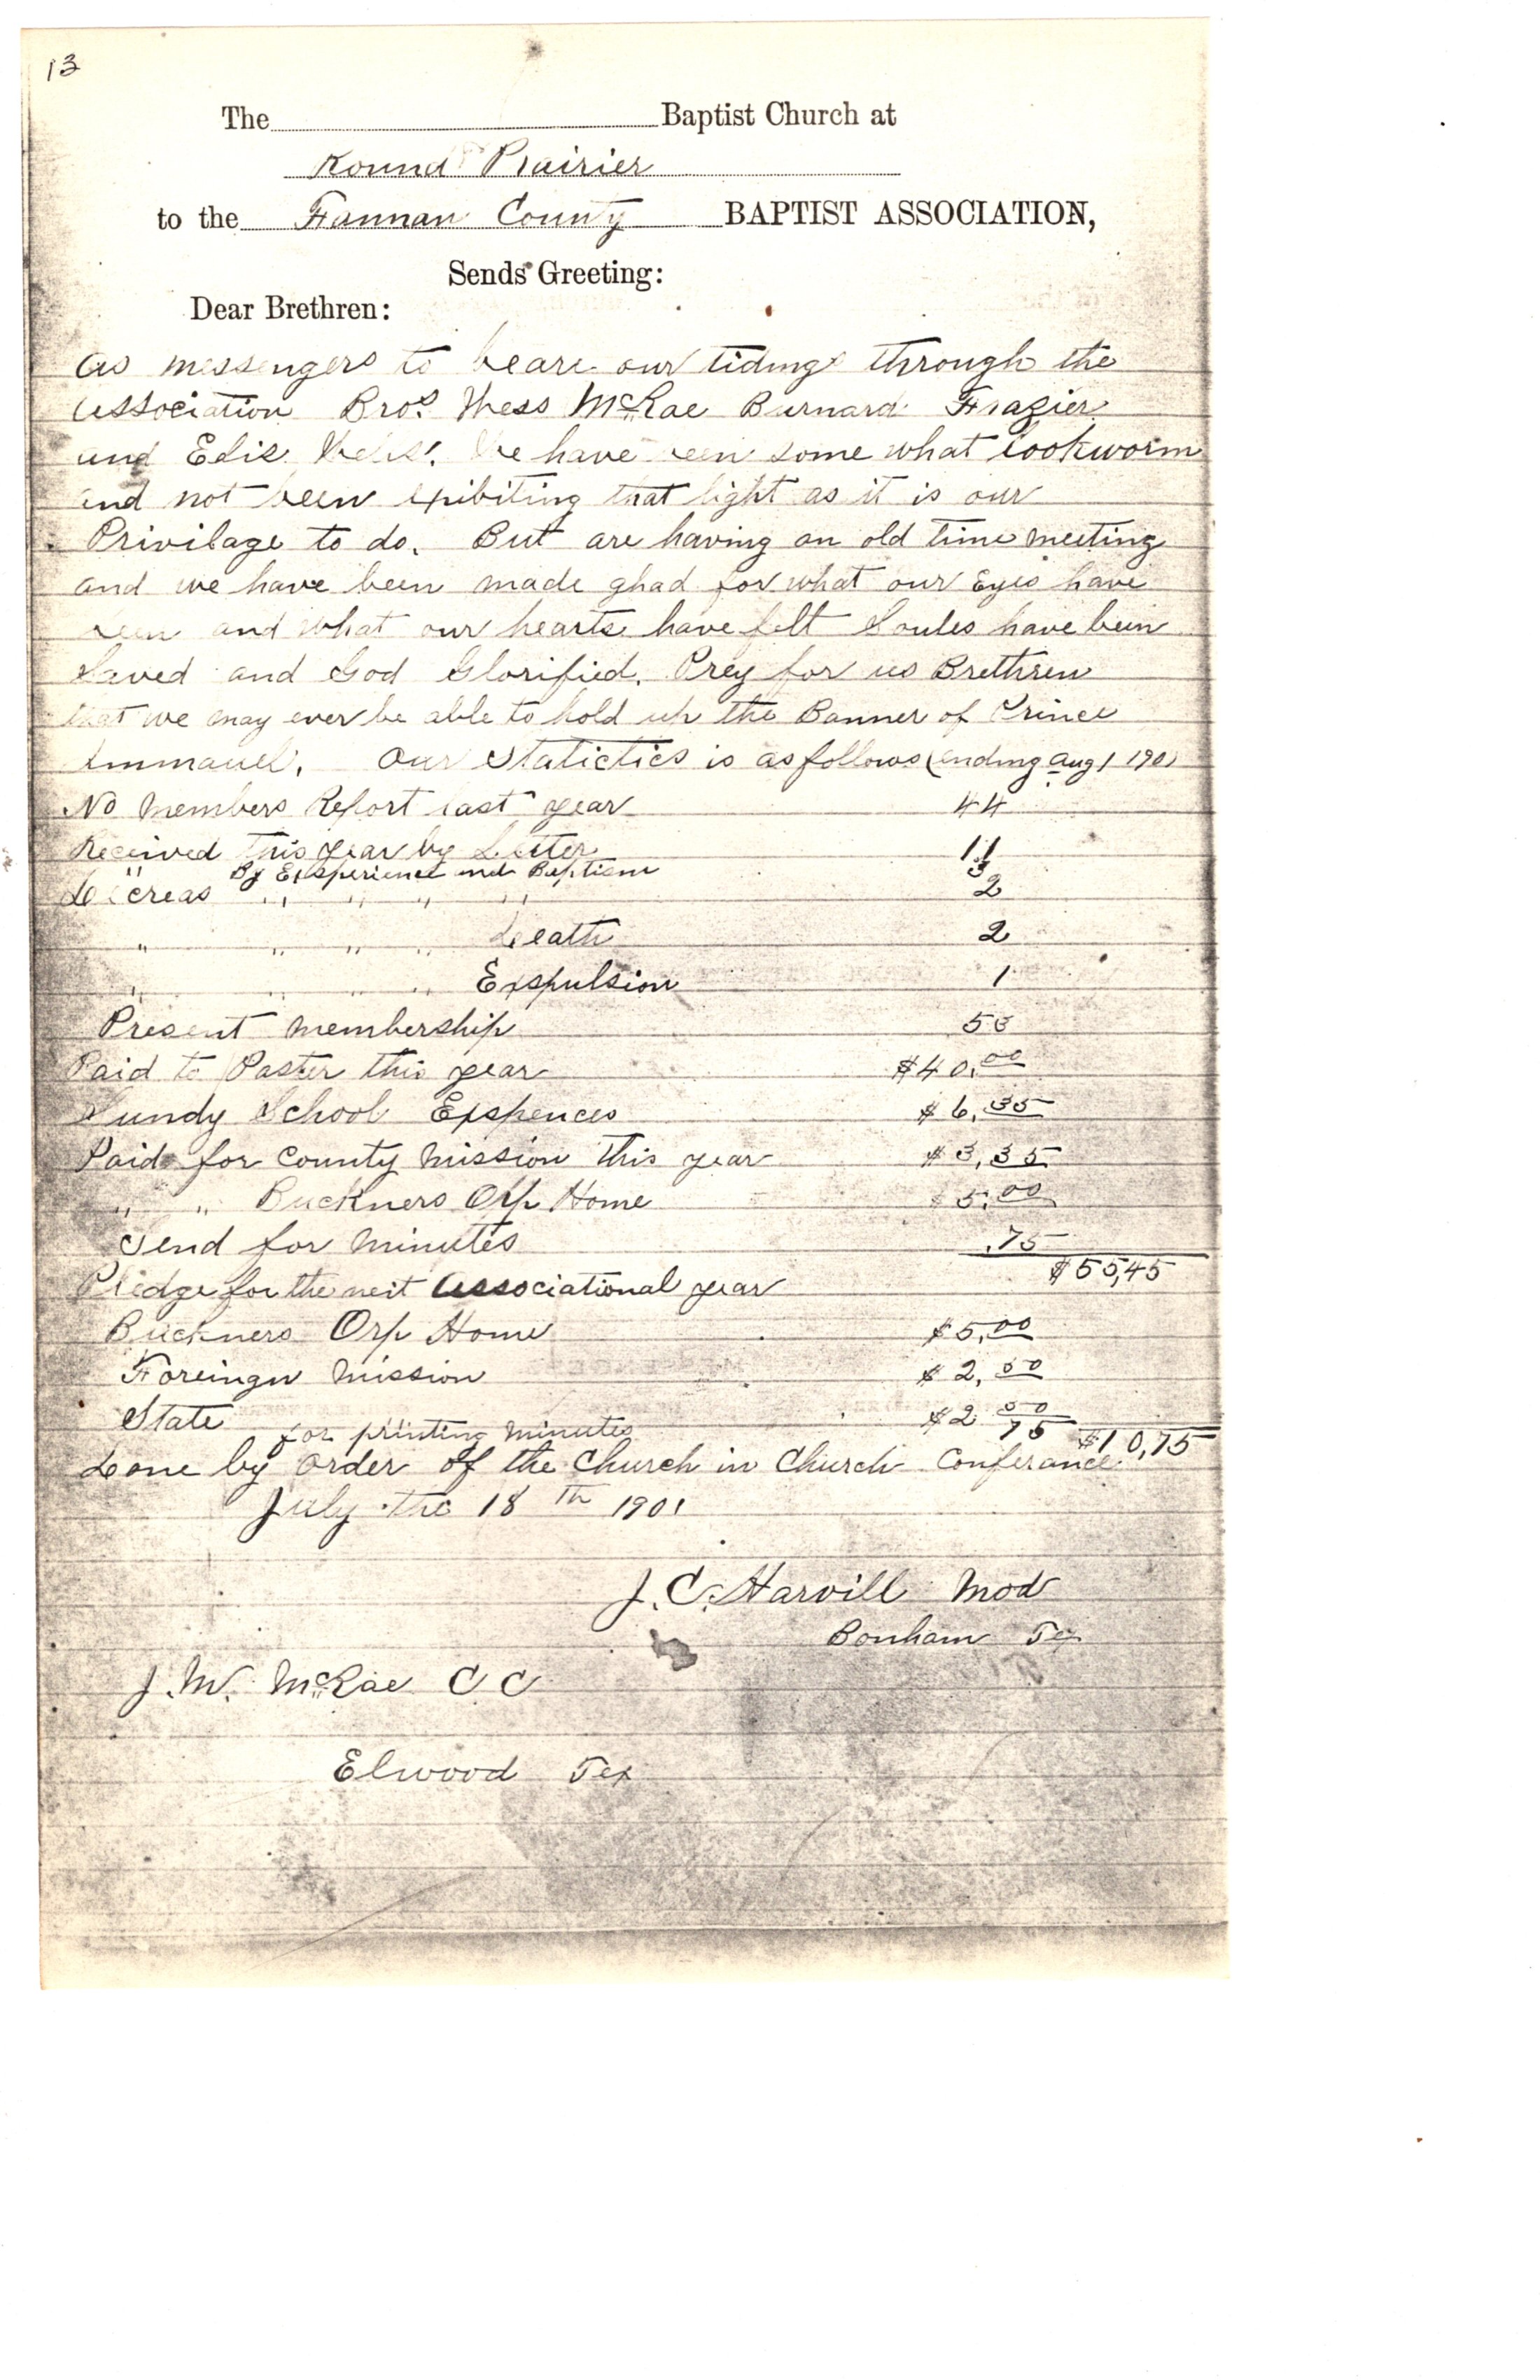 13
The Baptist Church at
Round Prairier
to the Fannan County BAPTIST ASSOCIATION,
Sends Greeting:
Dear Brethren:
as messengers to beare our tidings through the
association Bros. Wess McRae Burnard Frazier
and Edis We have been some what
and not been exibiting that light as it is our
Privilage to do. But are having an old time meeting
and we have been made ghad for what our Eyes have
seen and what our hearts have felt Soules have been
Saved and God Glorified. Prey for us Brethren
that we may ever be able to hold up the Banner of Prince
Immanuel. Our Statictics is as follows (ending aug 1 1901
No members Report last year 44
Received this year by Letter 11
" By Exsperience and Baptism 3
Decreas " " " " 2
" " " " Death 2
" " " " Exspulsion 1
Present membership
Paid to Paster this year $40.00
Sundy School Exspences $6.35
Paid for County mission this year $3,35
" " Buckners Orp Home 5.00
Send for minutes .75
$55,45
Pledge for the next associational year
Buckners Orp Home $5,00
Foreingn mission $2,50
State $2 50
for printing minutes 75 $10,75
Done by order of the Church in Church Conferance
July the 18th 1901
J. C. Harvill Mod
Bonham Tex
J. W. McRae C C
Elwood Tex